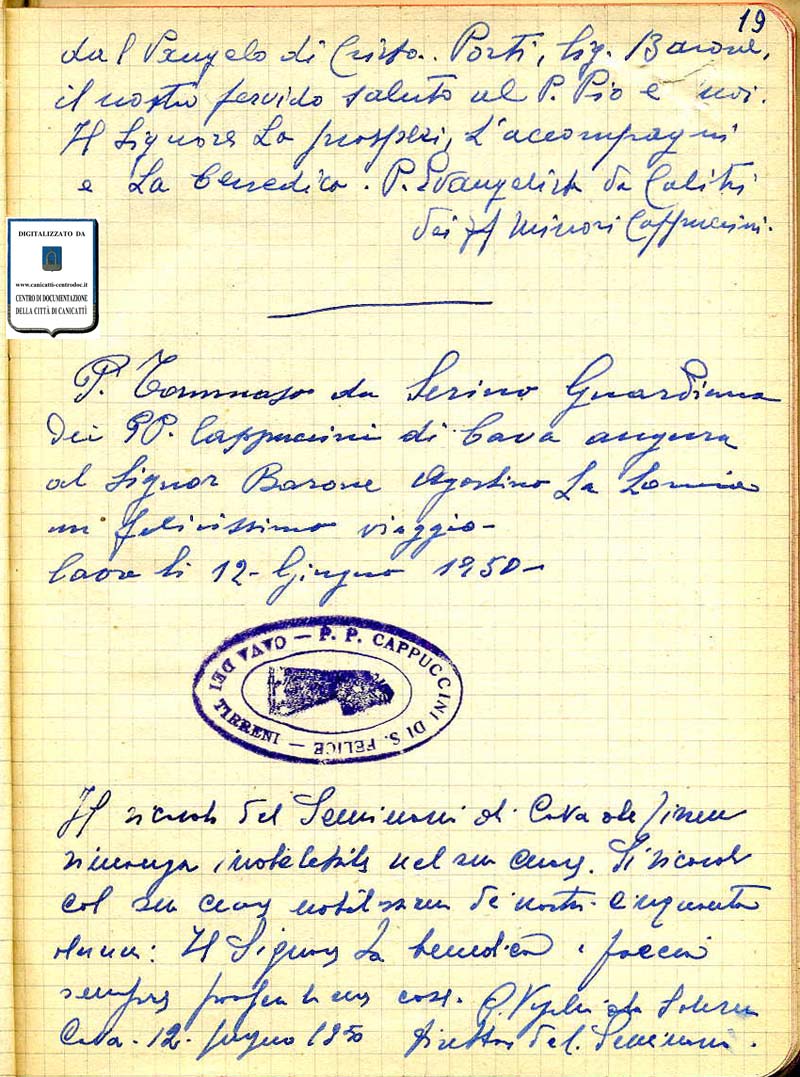 19
dal Vangelo di Cristo. Porti, Sig. Barone,
il nostro fervido saluto al P. Pio e noi.
Il Signore La prosperi, L'accompagni
e La benedica. P. Evangelista da Calitri
dei ff Minori Cappuccini.
DIGITALIZZATO DA
www.canicatti-centrodoc.it
CENTRO DI DOCUMENTAZIONE
DELLA CITTÀ DI CANICATTÌ
P. Tommaso da Serino Guardiano
dei PP. Cappuccini di Cava augura
al Signor Barone Agostino La Lomia
un felicissimo viaggio-
Cava li 12- Giugno 1950-
P. P. CAPPUCCINI DI S. FELICE — CAVA DEI TIRRENI —
Il ricordo del Seminario di Cava dei Tirreni
rimanga indelebile nel suo cuore. Si ricordi
col suo cuore nobilissimo de nostri cinquanta
alunni: Il Signore La benedica e faccia
sempre cose. P. da Salerno
Cava - 12 - giugno 1950 Direttore del Seminario.